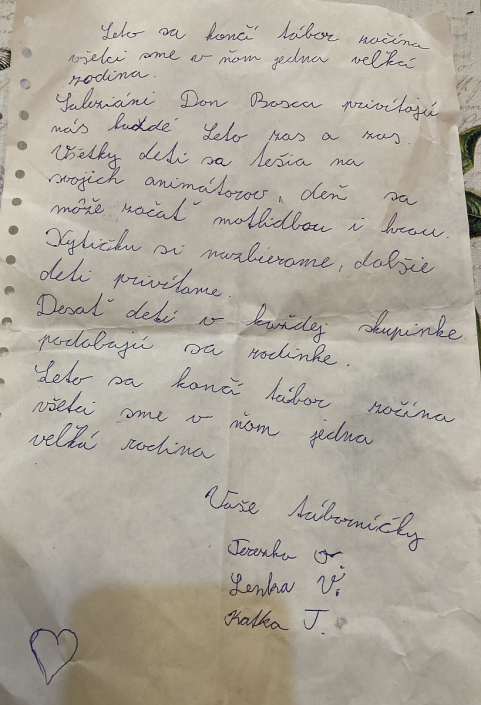 Leto sa končí tábor začína
všetci sme v ňom jedna veľká
rodina.
Saleziáni Don Bosca privítajú
nás každé Leto zas a zas.
Všetky deti sa tešia na
svojich animátorov, deň sa
môže začať motlidbou i hrou.
Kytičku si nazbierame, dalšie
deti privítame.
Desať detí v každej skupinke
podobajú sa rodinke.
Leto sa končí tábor začína
všetci sme v ňom jedna
veľká rodina
Vaše táborníčky
Terezka O.
Lenka V.
Katka J.